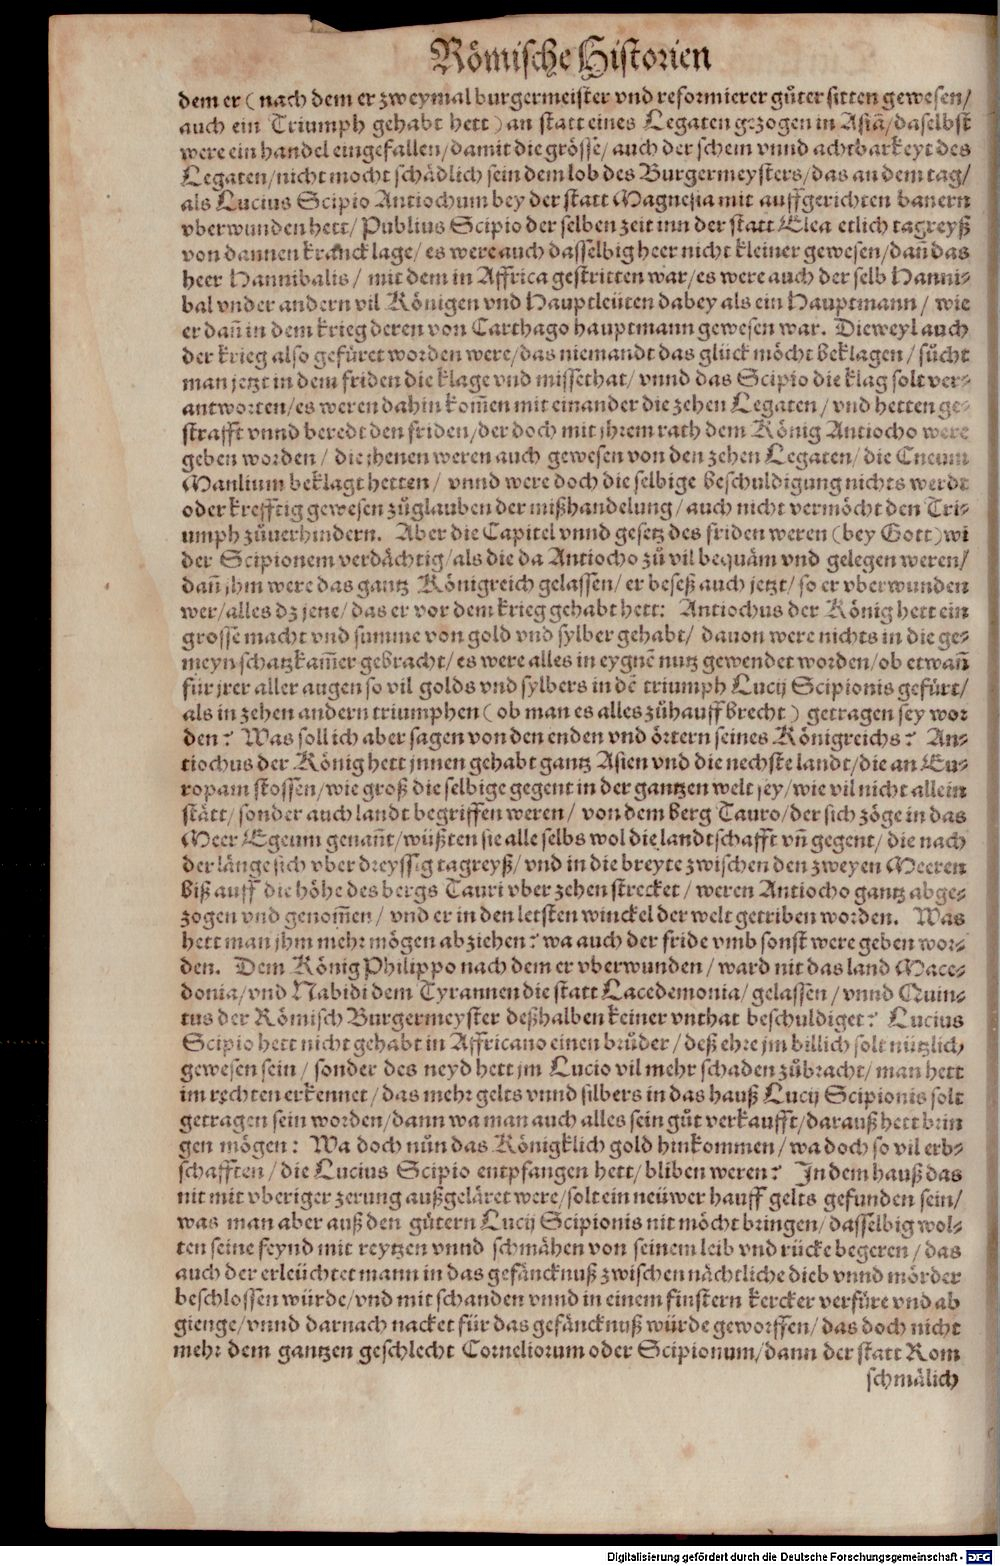 Römische Historien
dem er ( nach dem er zweymal burgermeister vnd reformierer gůter sitten gewesen/
auch ein Triumph gehabt hett ) an statt eines Legaten gezogen in Asiã/ daselbst
were ein handel eingefallen/ damit die grösse/ auch der schein vnnd achtbarkeyt des
Legaten/ nicht mocht schädlich sein dem lob des Burgermeysters/ das an dem tag/
als Lucius Scipio Antiochum bey der statt Magnesia mit auffgerichten banern
vberwunden hett/ Publius Scipio der selben zeit inn der statt Elea etlich tagreyß
von dannen kranck lage/ es were auch dasselbig heer nicht kleiner gewesen/ dañ das
heer Hannibalis / mit dem in Affrica gestritten war/ es were auch der selb Hanni-
bal vnder andern vil Königen vnd Hauptleüten dabey als ein Hauptmann / wie
er dañ in dem krieg deren von Carthago hauptmann gewesen war. Dieweyl auch
der krieg also gefüret worden were/ das niemandt das glück möcht beklagen / sůcht
man jetzt in dem friden die klage vnd missethat/ vnnd das Scipio die klag solt ver-
antworten/ es weren dahin kom̃en mit einander die zehen Legaten / vnd hetten ge-
strafft vnnd beredt den friden/ der doch mit jhrem rath dem König Antiocho were
geben worden / die jhenen weren auch gewesen von den zehen Legaten/ die Cneum
Manlium beklagt hetten / vnnd were doch die selbige beschuldigung nichts werdt
oder krefftig gewesen zůglauben der mißhandelung/ auch nicht vermöcht den Tri-
umph zůuerhindern. Aber die Capitel vnnd gesetz des friden weren ( bey Gott ) wi
der Scipionem verdächtig/ als die da Antiocho zů vil bequäm vnd gelegen weren/
dañ jhm were das gantz Königreich gelassen/ er beseß auch jetzt/ so er vberwunden
wer/ alles dz jene/ das er vor dem krieg gehabt hett: Antiochus der König hett ein
grosse macht vnd summe von gold vnd sylber gehabt/ dauon were nichts in die ge-
meyn schatzkam̃er gebracht/ es were alles in eygnẽ nutz gewendet worden/ ob etwañ
für jrer aller augen so vil golds vnd sylbers in dẽ triumph Lucij Scipionis gefürt/
als in zehen andern triumphen ( ob man es alles zůhauff brecht ) getragen sey wor
den? Was soll ich aber sagen von den enden vnd örtern seines Königreichs? An-
tiochus der König hett jnnen gehabt gantz Asien vnd die nechste landt/ die an Eu-
ropam stossen/ wie groß die selbige gegent in der gantzen welt sey/ wie vil nicht allein
stätt/ sonder auch landt begriffen weren / von dem berg Tauro/ der sich zöge in das
Meer Egeum genañt/ wüßten sie alle selbs wol die landtschafft vñ gegent/ die nach
der länge sich vber dreyssig tagreyß/ vnd in die breyte zwischen den zweyen Meeren
biß auff die höhe des bergs Tauri vber zehen strecket / weren Antiocho gantz abge-
zogen vnd genom̃en / vnd er in den letsten winckel der welt getriben worden. Was
hett man jhm mehr mögen abziehen? wa auch der fride vmb sonst were geben wor-
den. Dem König Philippo nach dem er vberwunden / ward nit das land Mace-
donia/ vnd Nabidi dem Tyrannen die statt Lacedemonia/ gelassen / vnnd Quin-
tus der Römisch Burgermeyster deßhalben keiner vnthat beschuldiget? Lucius
Scipio hett nicht gehabt in Affricano einen brůder / deß ehre jm billich solt nützlich
gewesen sein / sonder des neyd hett jm Lucio vil mehr schaden zůbracht/ man hett
im rechten erkennet / das mehr gelts vnnd silbers in das hauß Lucij Scipionis solt
getragen sein worden/ dann wa man auch alles sein gůt verkaufft/ darauß hett brin
gen mögen: Wa doch nůn das Königklich gold hinkommen / wa doch so vil erb-
schafften / die Lucius Scipio entpfangen hett/ bliben weren? In dem hauß das
nit mit vberiger zerung außgeläret were/ solt ein neüwer hauff gelts gefunden sein/
was man aber auß den gůtern Lucij Scipionis nit möcht bringen/ dasselbig wol-
ten seine feynd mit reytzen vnnd schmähen von seinem leib vnd rücke begeren / das
auch der erleüchtet mann in das gefäncknuß zwischen nächtliche dieb vnnd mörder
beschlossen würde/ vnd mit schanden vnnd in einem finstern kercker verfüre vnd ab
gienge/ vnnd darnach nacket für das gefäncknuß würde geworffen / das doch nicht
mehr dem gantzen geschlecht Corneliorum oder Scipionum/ dann der statt Rom
schmälich
Digitalisierung gefördert durch die Deutsche Forschungsgemeinschaft - DFG